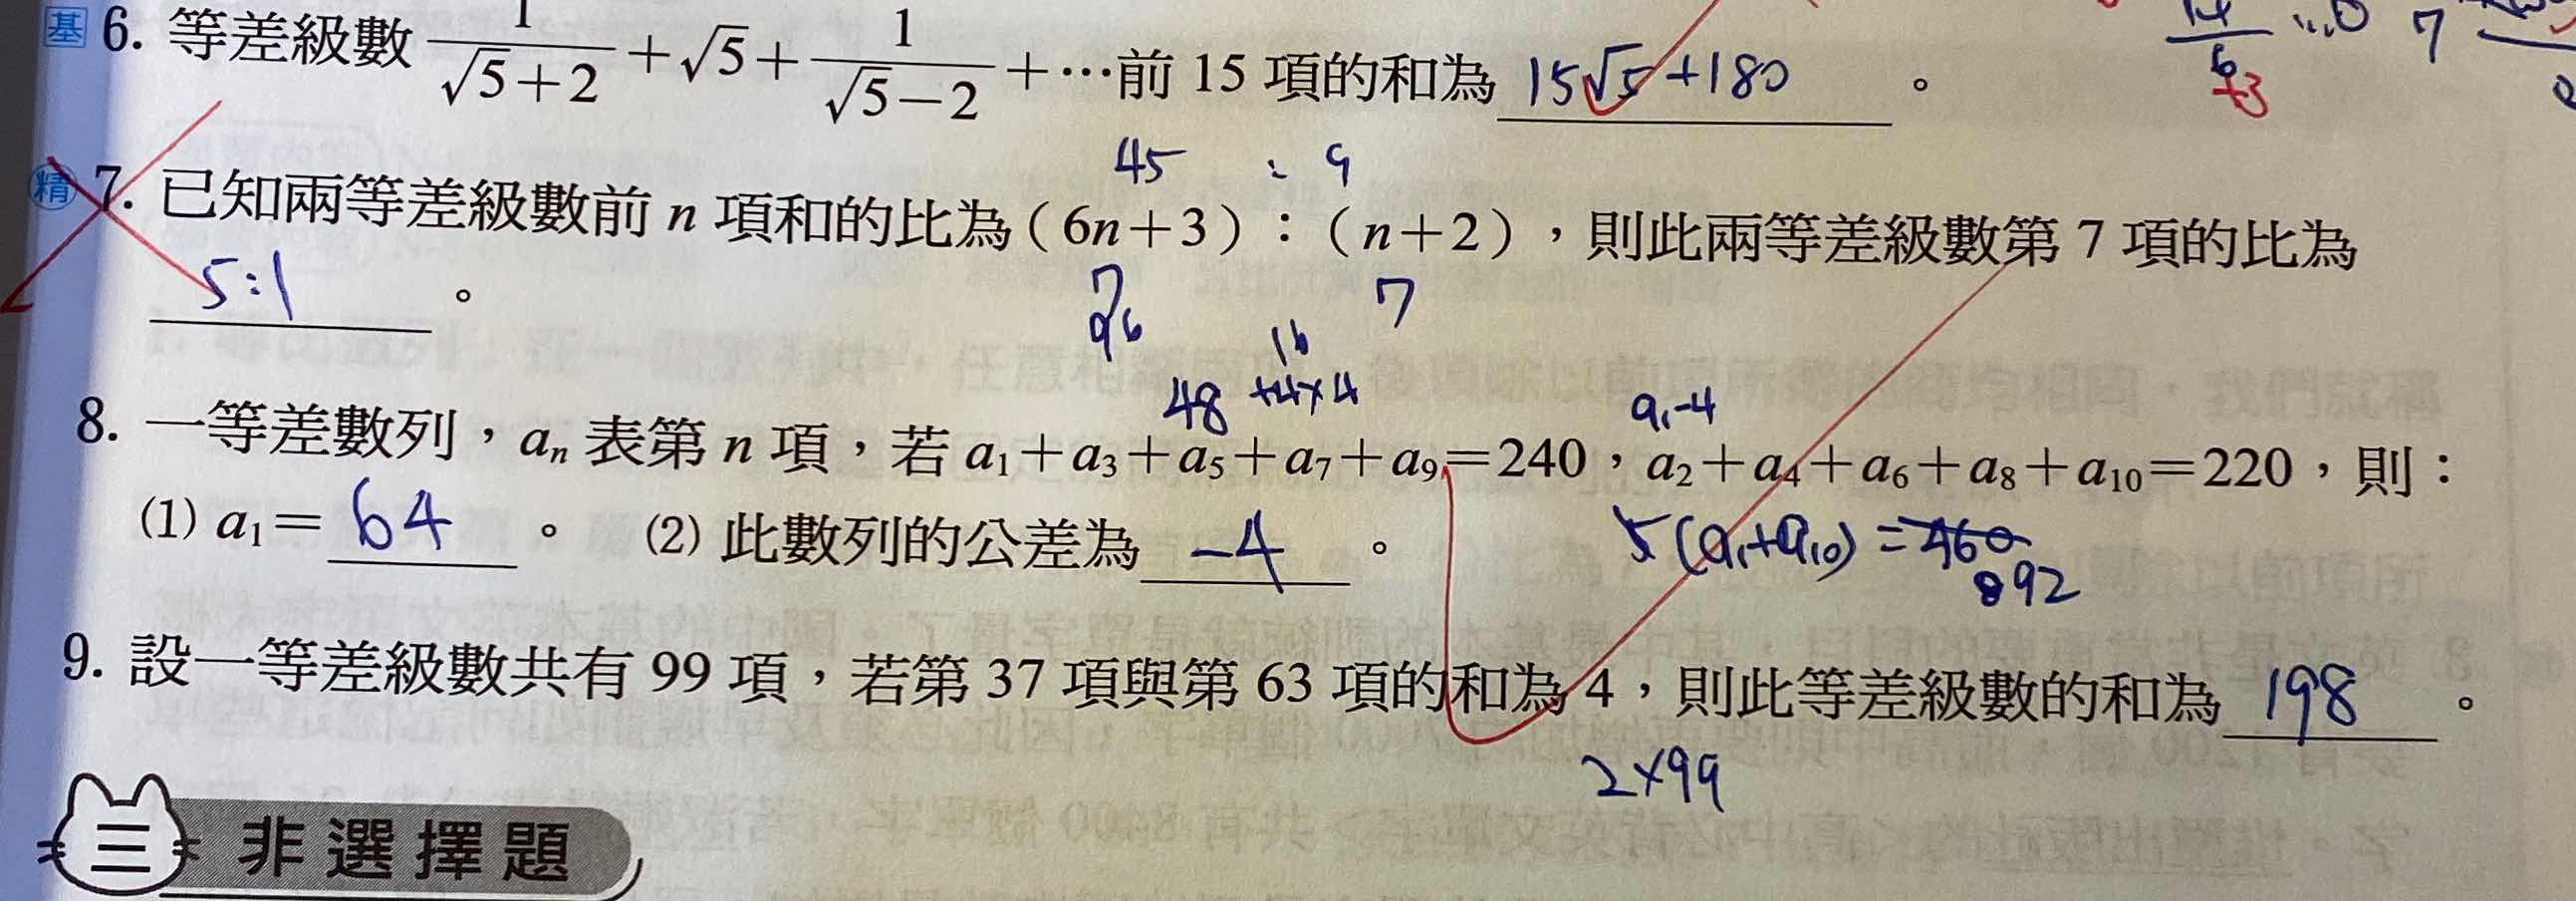 基 6. 等差級數 1/(√5+2) + √5 + 1/(√5−2) + ⋯前 15 項的和為 15√5+180 。
45 : 9
精 7. 已知兩等差級數前 n 項和的比為(6n+3):(n+2),則此兩等差級數第 7 項的比為
5:1 。
7 7
96
16
48 +4×4 a₁-4
8. 一等差數列,aₙ 表第 n 項,若 a₁+a₃+a₅+a₇+a₉=240,a₂+a₄+a₆+a₈+a₁₀=220,則:
(1) a₁= 64 。 (2) 此數列的公差為 -4 。 5(a₁+a₁₀)=460
92
9. 設一等差級數共有 99 項,若第 37 項與第 63 項的和為 4,則此等差級數的和為 198 。
2×99
三 非選擇題